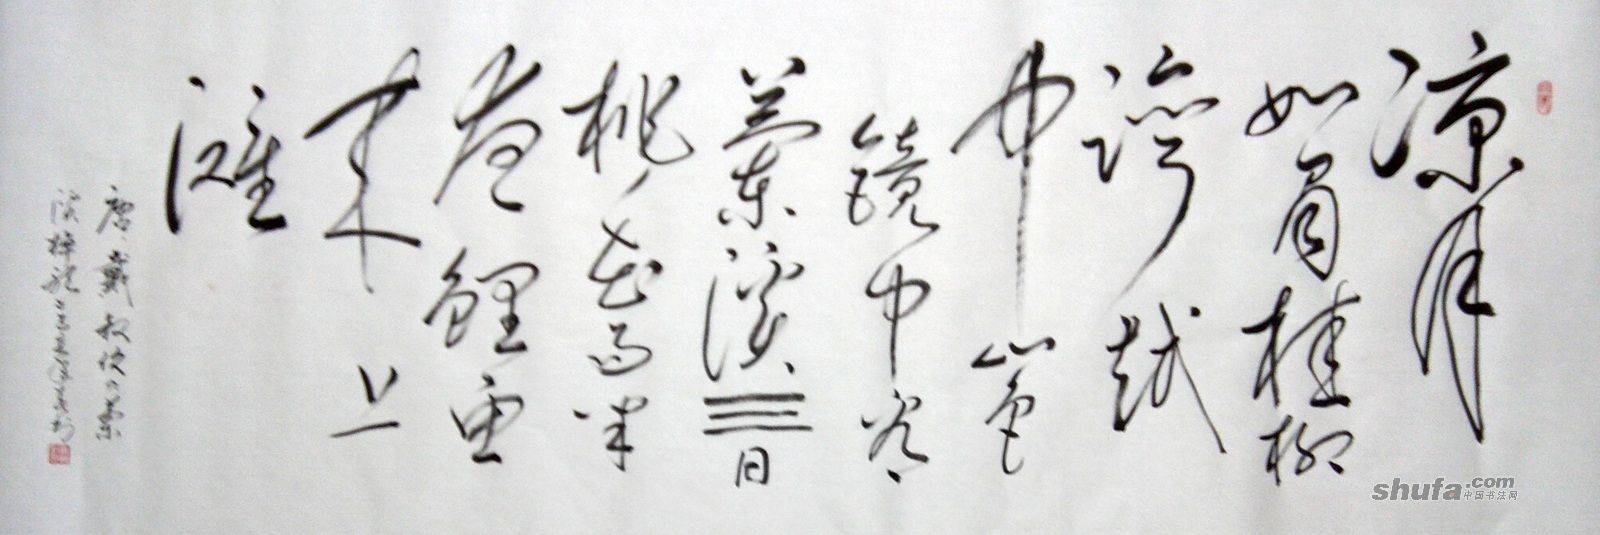 涼月
如眉挂柳
灣越
中山色
鏡中看
蘭溪三日
桃花雨半
夜鯉魚
来上
滩
唐戴叔倫蘭
溪棹歌
shufa.com
中国书法网